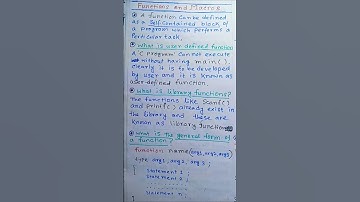 Functions and Macros
A function can be defined
as a self contained block of
a program which performs a
particular task.
What is user defined function
A 'C program' cannot execute
without having main().
clearly it is to be developed
by user and it is known as
user-defined function.
What is library functions?
The functions like scanf()
and printf() already exist in
the library and these are
known as library function
What is the general form of
a function?
function name (arg1, arg2, arg3)
type arg1, arg2, arg3;
{ statement 1;
statement 2;
statement n;
}